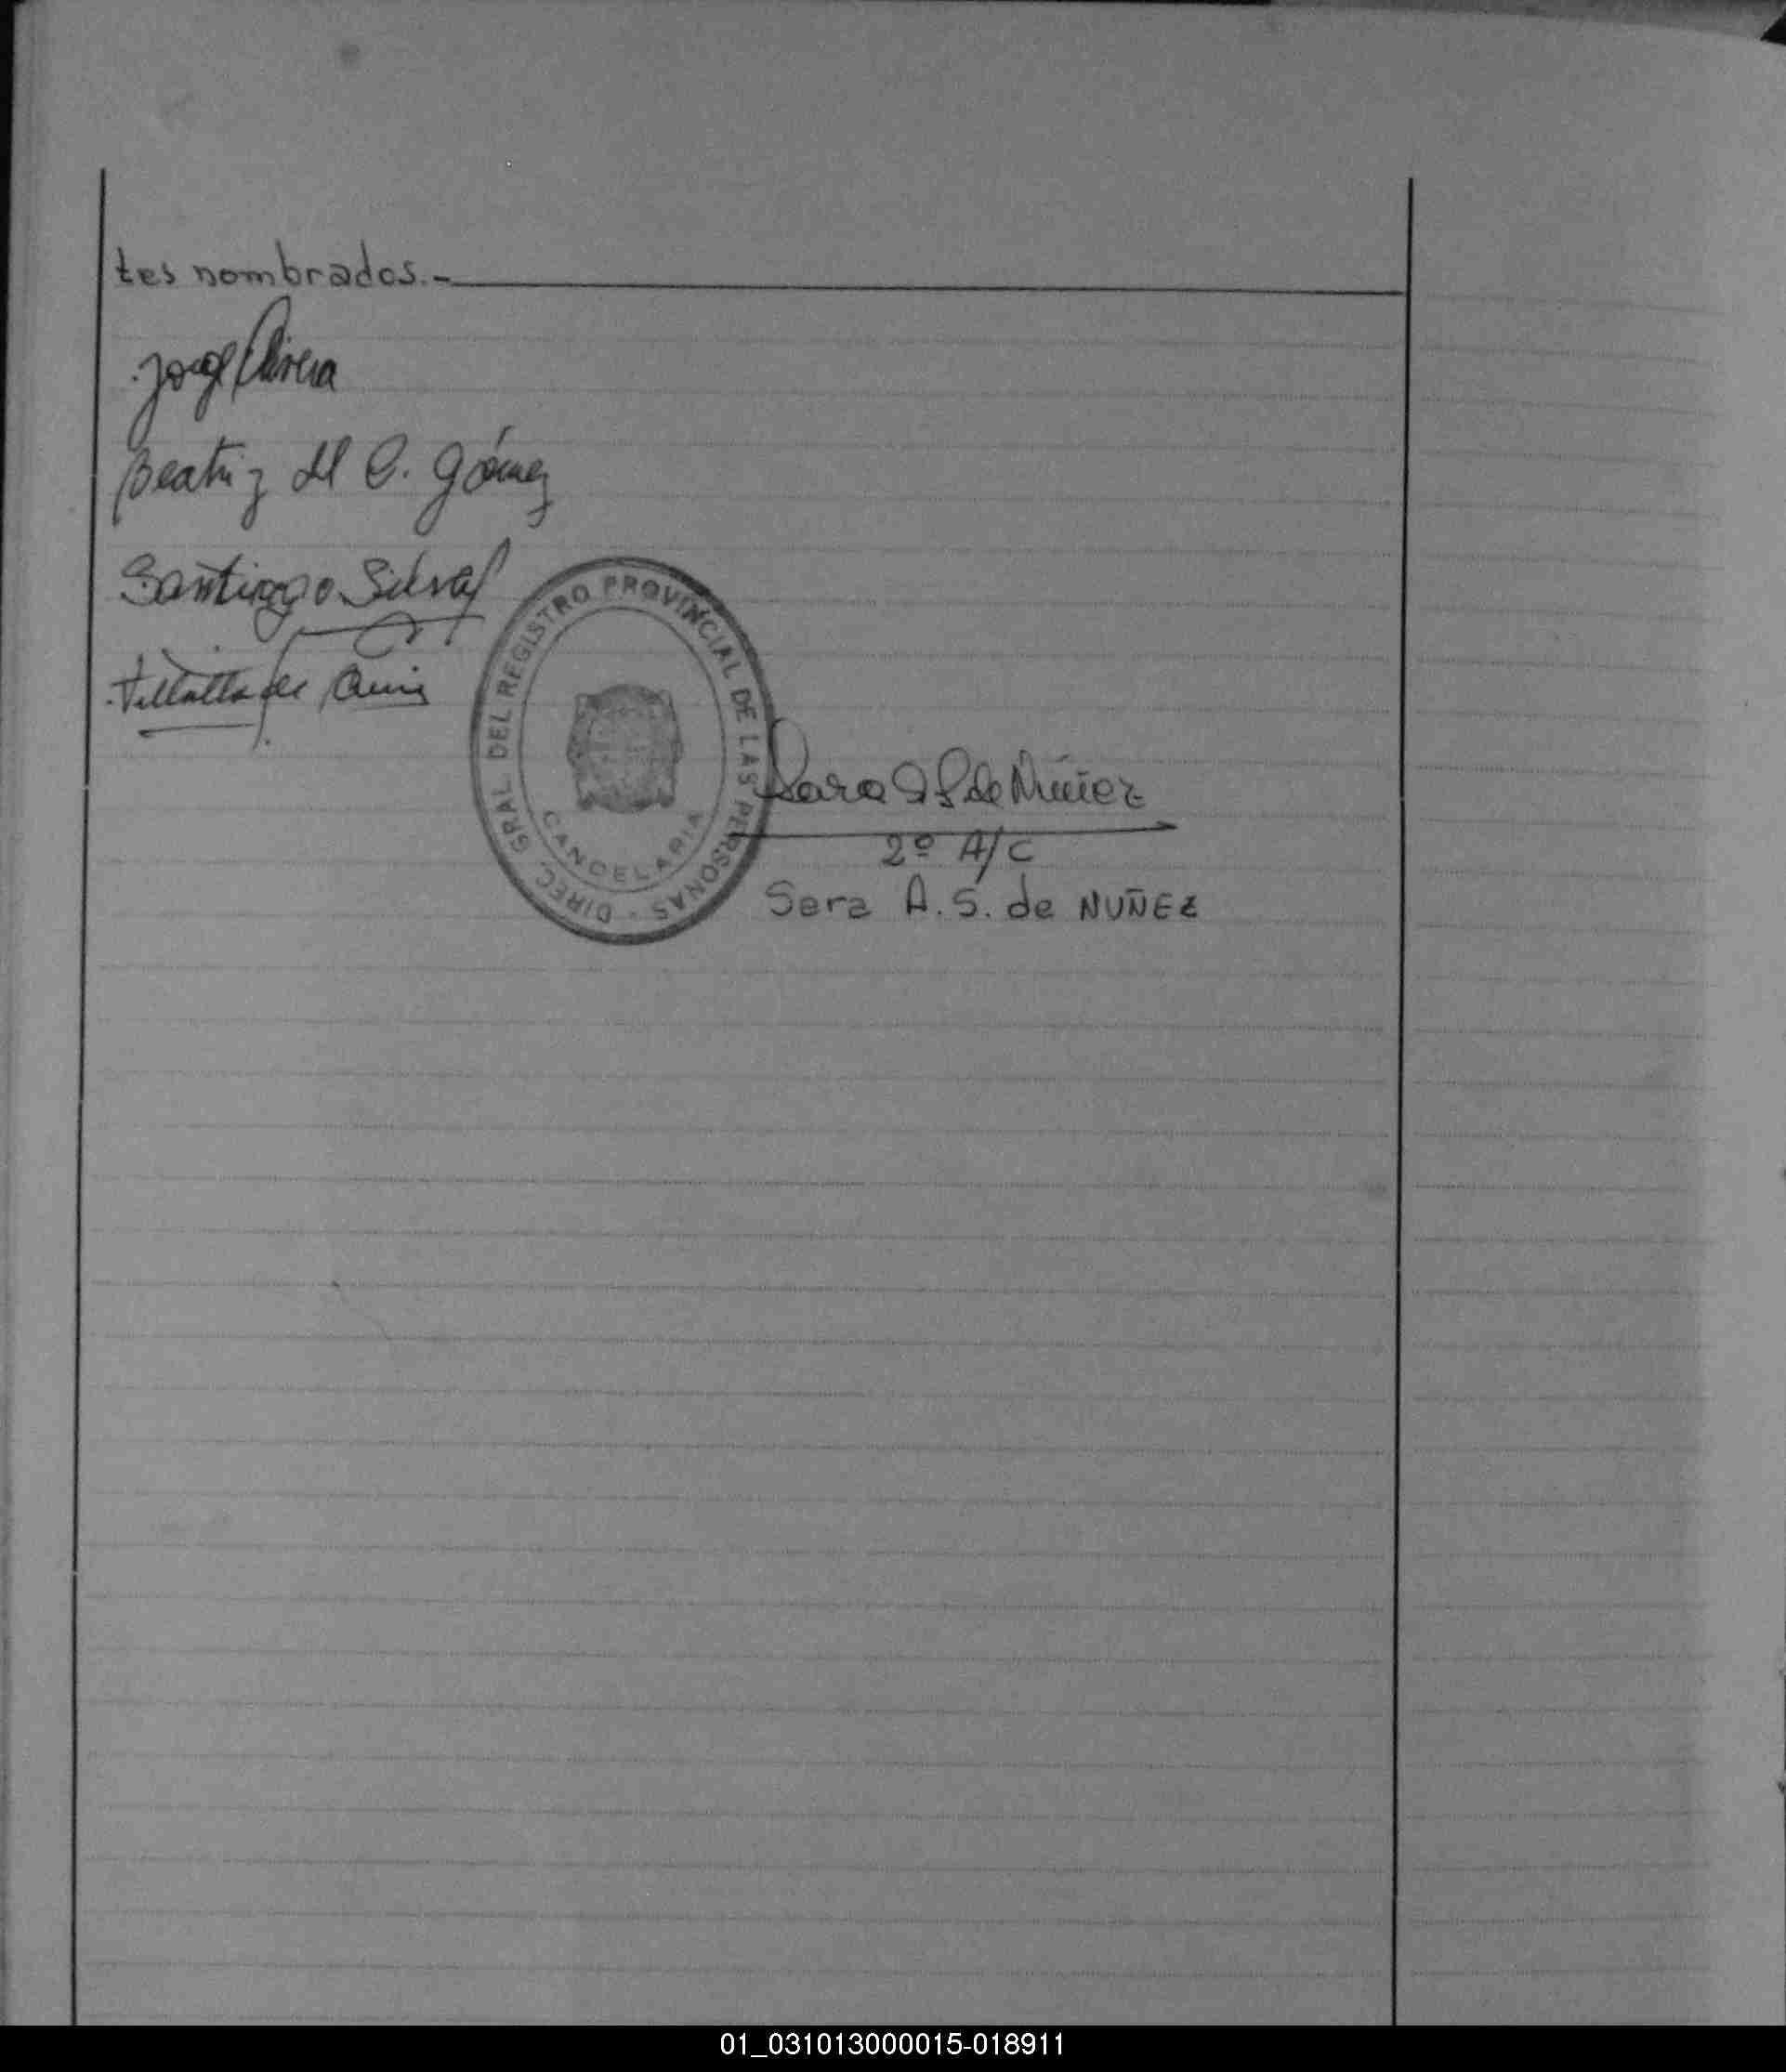 tes nombrados.-
Jorge Olivera
Beatriz del C. Gómez
Santiago Silva
de
DIREC. GRAL. DEL REGISTRO PROVINCIAL DE LAS PERSONAS -
CANDELARIA
Sara A S de Núñez
2º A/C
Sara A. S. de NUÑEZ
01_031013000015-018911